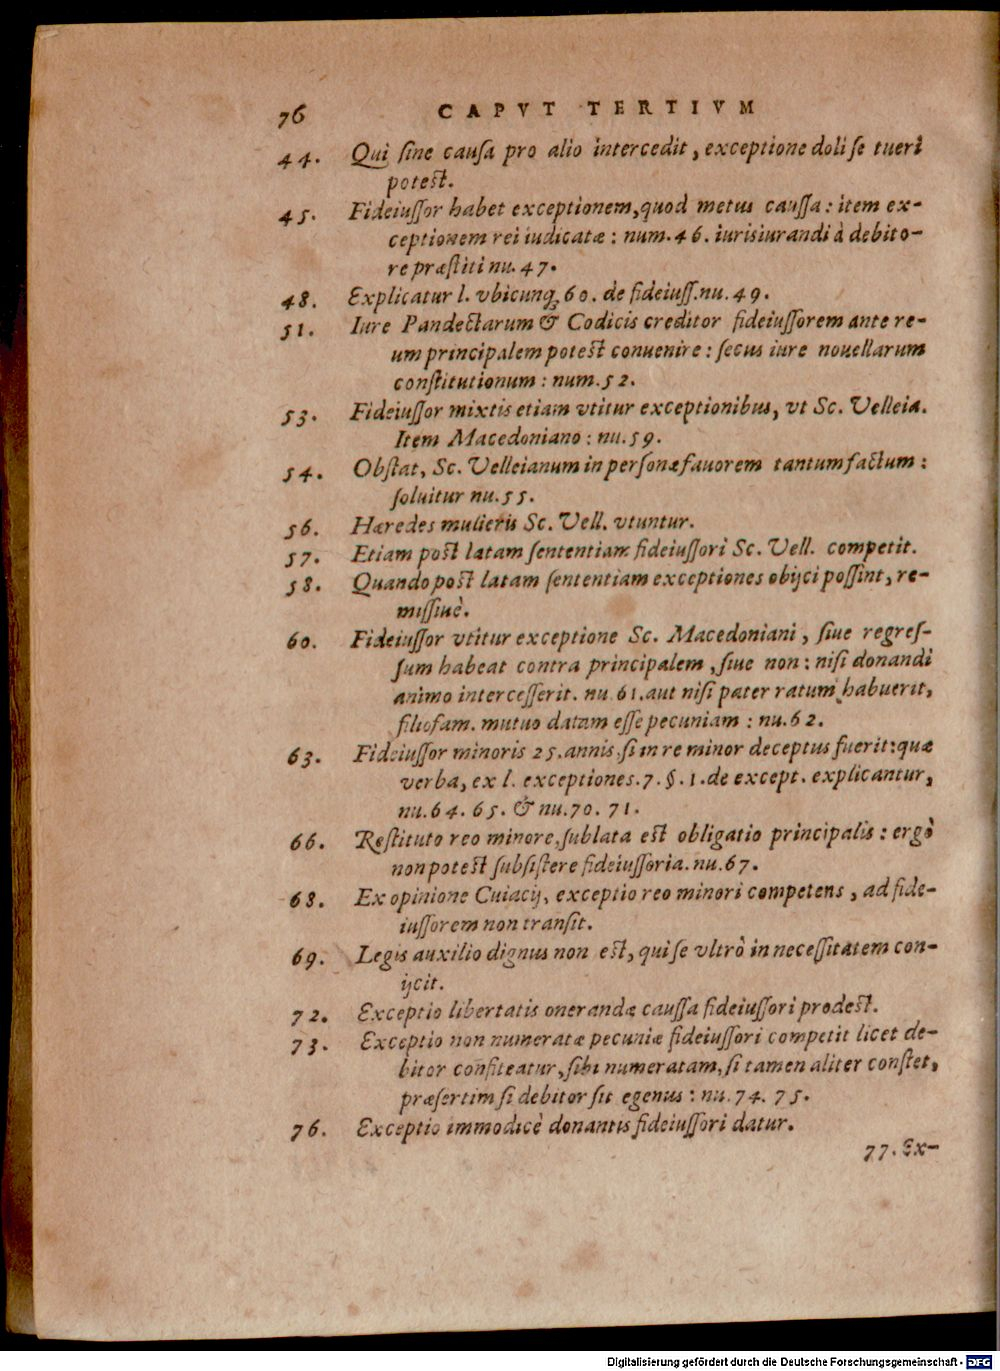 76 CAPVT TERTIVM
44. Qui ſine cauſa pro alio intercedit, exceptione doli ſe tueri
poteſt.
45. Fideiuſſor habet exceptionem, quod metus cauſſa: item ex-
ceptionem rei iudicatæ: num. 46. iurisiurandi à debito-
re præſtiti nu. 47.
48. Explicatur l. vbicunq; 60. de fideiuſſ. nu. 49.
51. Iure Pandectarum & Codicis creditor fideiuſſorem ante re-
um principalem poteſt conuenire: ſecus iure nouellarum
conſtitutionum: num. 52.
53. Fideiuſſor mixtis etiam vtitur exceptionibus, vt Sc. Velleia.
Item Macedoniano: nu. 59.
54. Obſtat, Sc. Velleianum in perſonæ fauorem tantum factum:
ſoluitur nu. 55.
56. Hæredes mulieris Sc. Vell. vtuntur.
57. Etiam poſt latam ſententiam fideiuſſori Sc. Vell. competit.
58. Quando poſt latam ſententiam exceptiones obijci poſſint, re-
miſſiuè.
60. Fideiuſſor vtitur exceptione Sc. Macedoniani, ſiue regreſ-
ſum habeat contra principalem, ſiue non: niſi donandi
animo interceſſerit. nu. 61. aut niſi pater ratum habuerit,
filiofam. mutuo datam eſſe pecuniam: nu. 62.
63. Fideiuſſor minoris 25. annis, ſi in re minor deceptus fuerit: quæ
verba, ex l. exceptiones. 7. §. 1. de except. explicantur,
nu. 64. 65. & nu. 70. 71.
66. Reſtituto reo minore, ſublata eſt obligatio principalis: ergò
non poteſt ſubſiſtere fideiuſſoria. nu. 67.
68. Ex opinione Cuiacij, exceptio reo minori competens, ad fide-
iuſſorem non tranſit.
69. Legis auxilio dignus non eſt, qui ſe vltrò in neceſſitatem con-
ijcit.
72. Exceptio libertatis onerandæ cauſſa fideiuſſori prodeſt.
73. Exceptio non numeratæ pecuniæ fideiuſſori competit licet de-
bitor confiteatur, ſibi numeratam, ſi tamen aliter conſtet,
præſertim ſi debitor ſit egenus: nu. 74. 75.
76. Exceptio immodicè donantis fideiuſſori datur.
77. Ex-
Digitalisierung gefördert durch die Deutsche Forschungsgemeinschaft - DFG